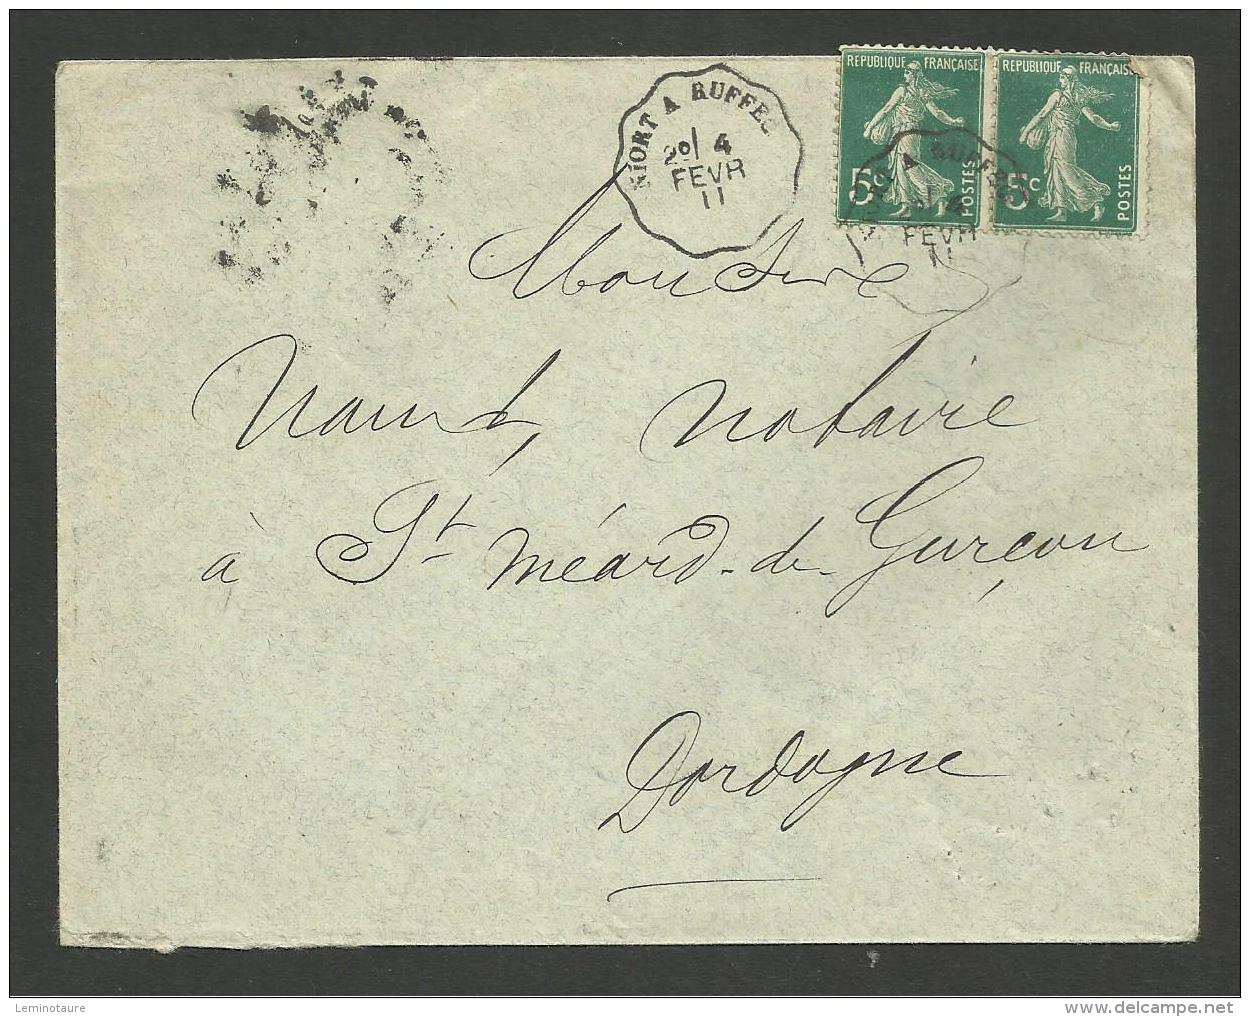 NIORT A RUFFEC
2º/ 4
FEVR
11
REPUBLIQUE FRANÇAISE
5c
POSTES
REPUBLIQUE FRANÇAISE
5c
POSTES
A RUFFEC
4
FEVR
11
Monsieur
notaire
à St Méard-de-Gurçon
Dordogne
Leminotaure
delcampe.net